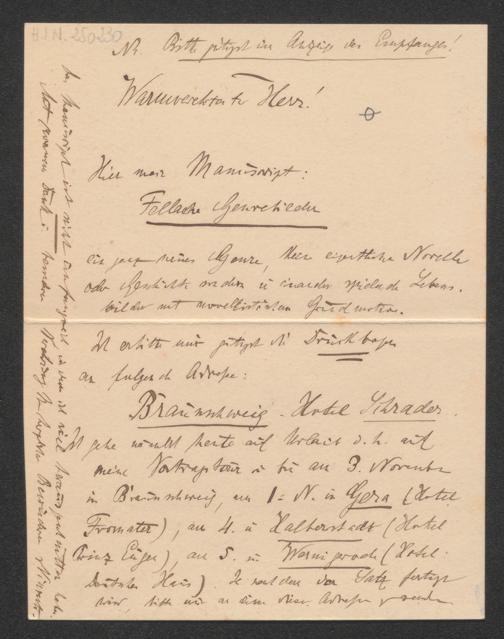 H.I.N. 250230
NB. Bitte gütigst um Anzeige des Empfanges!
Warmverehrter Herr!
Hier mein Manuscript:
Fellache Genrebilder
ein ganz neues Genre, keine eigentliche Novelle
oder Geschichte sondern in einander spielende Lebens-
bilder mit novellistischen Grundmotiven.
Ich erbitte mir gütigst die Druckbogen
an folgende Adresse:
Braunschweig. Hotel Schrader.
Ich gehe nämlich heute auf Urlaub d. h. auf
meine Vortragstour u bin am 3. November
in Braunschweig, am 1. N. in Gera (Hotel
Frommater), am 4. in Halberstadt (Hotel
Prinz Eugen), am 5. in Wernigerode (Hotel:
Deutsches Haus). Je nachdem der Satz fertig
wird, bitte mir an eine dieser Adressen zu senden
Das Manuscript ist nicht umfangreich
Mit warmem Dank u.